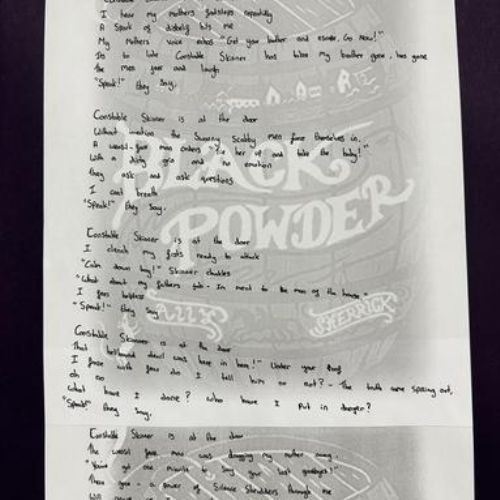 Constable Skinner is at the door
I hear my mothers footsteps repeatedly
A spark of disbelief hits me
My mothers voice echos "Get your brother and escape, Go Now!"
Its to late Constable Skinner has took my brother gone, has gone
The men jeer and laugh
"Speak!" they say.
Constable Skinner is at the door
Without invitation the Swarmy Scabby men force themselves in.
A weasel-face man orders "Tie her up and take the baby!"
With a dirty grin and no emotion
they ask and ask questions
I cant breath
"Speak!" They Say.
Constable Skinner is at the door
I clench my fists ready to attack
"Calm down boy!" Skinner chuckles
"What about my fathers job - Im next to be man of the house."
I feel helpless
"Speak!" they say
Constable Skinner is at the door
That bellowed devil was here in here!" Under your roof
I froze with fear do I tell him or not? - The truth came spilling out,
oh no
What have I done? who have I put in danger?
"Speak!" they say.
Constable Skinner is at the door
The weasel face man was dragging my mother away.
"You've got one minute to say your last goodbyes!"
There you - a power of silence shudders through me
BLACK POWDER
ALLY SHERRICK